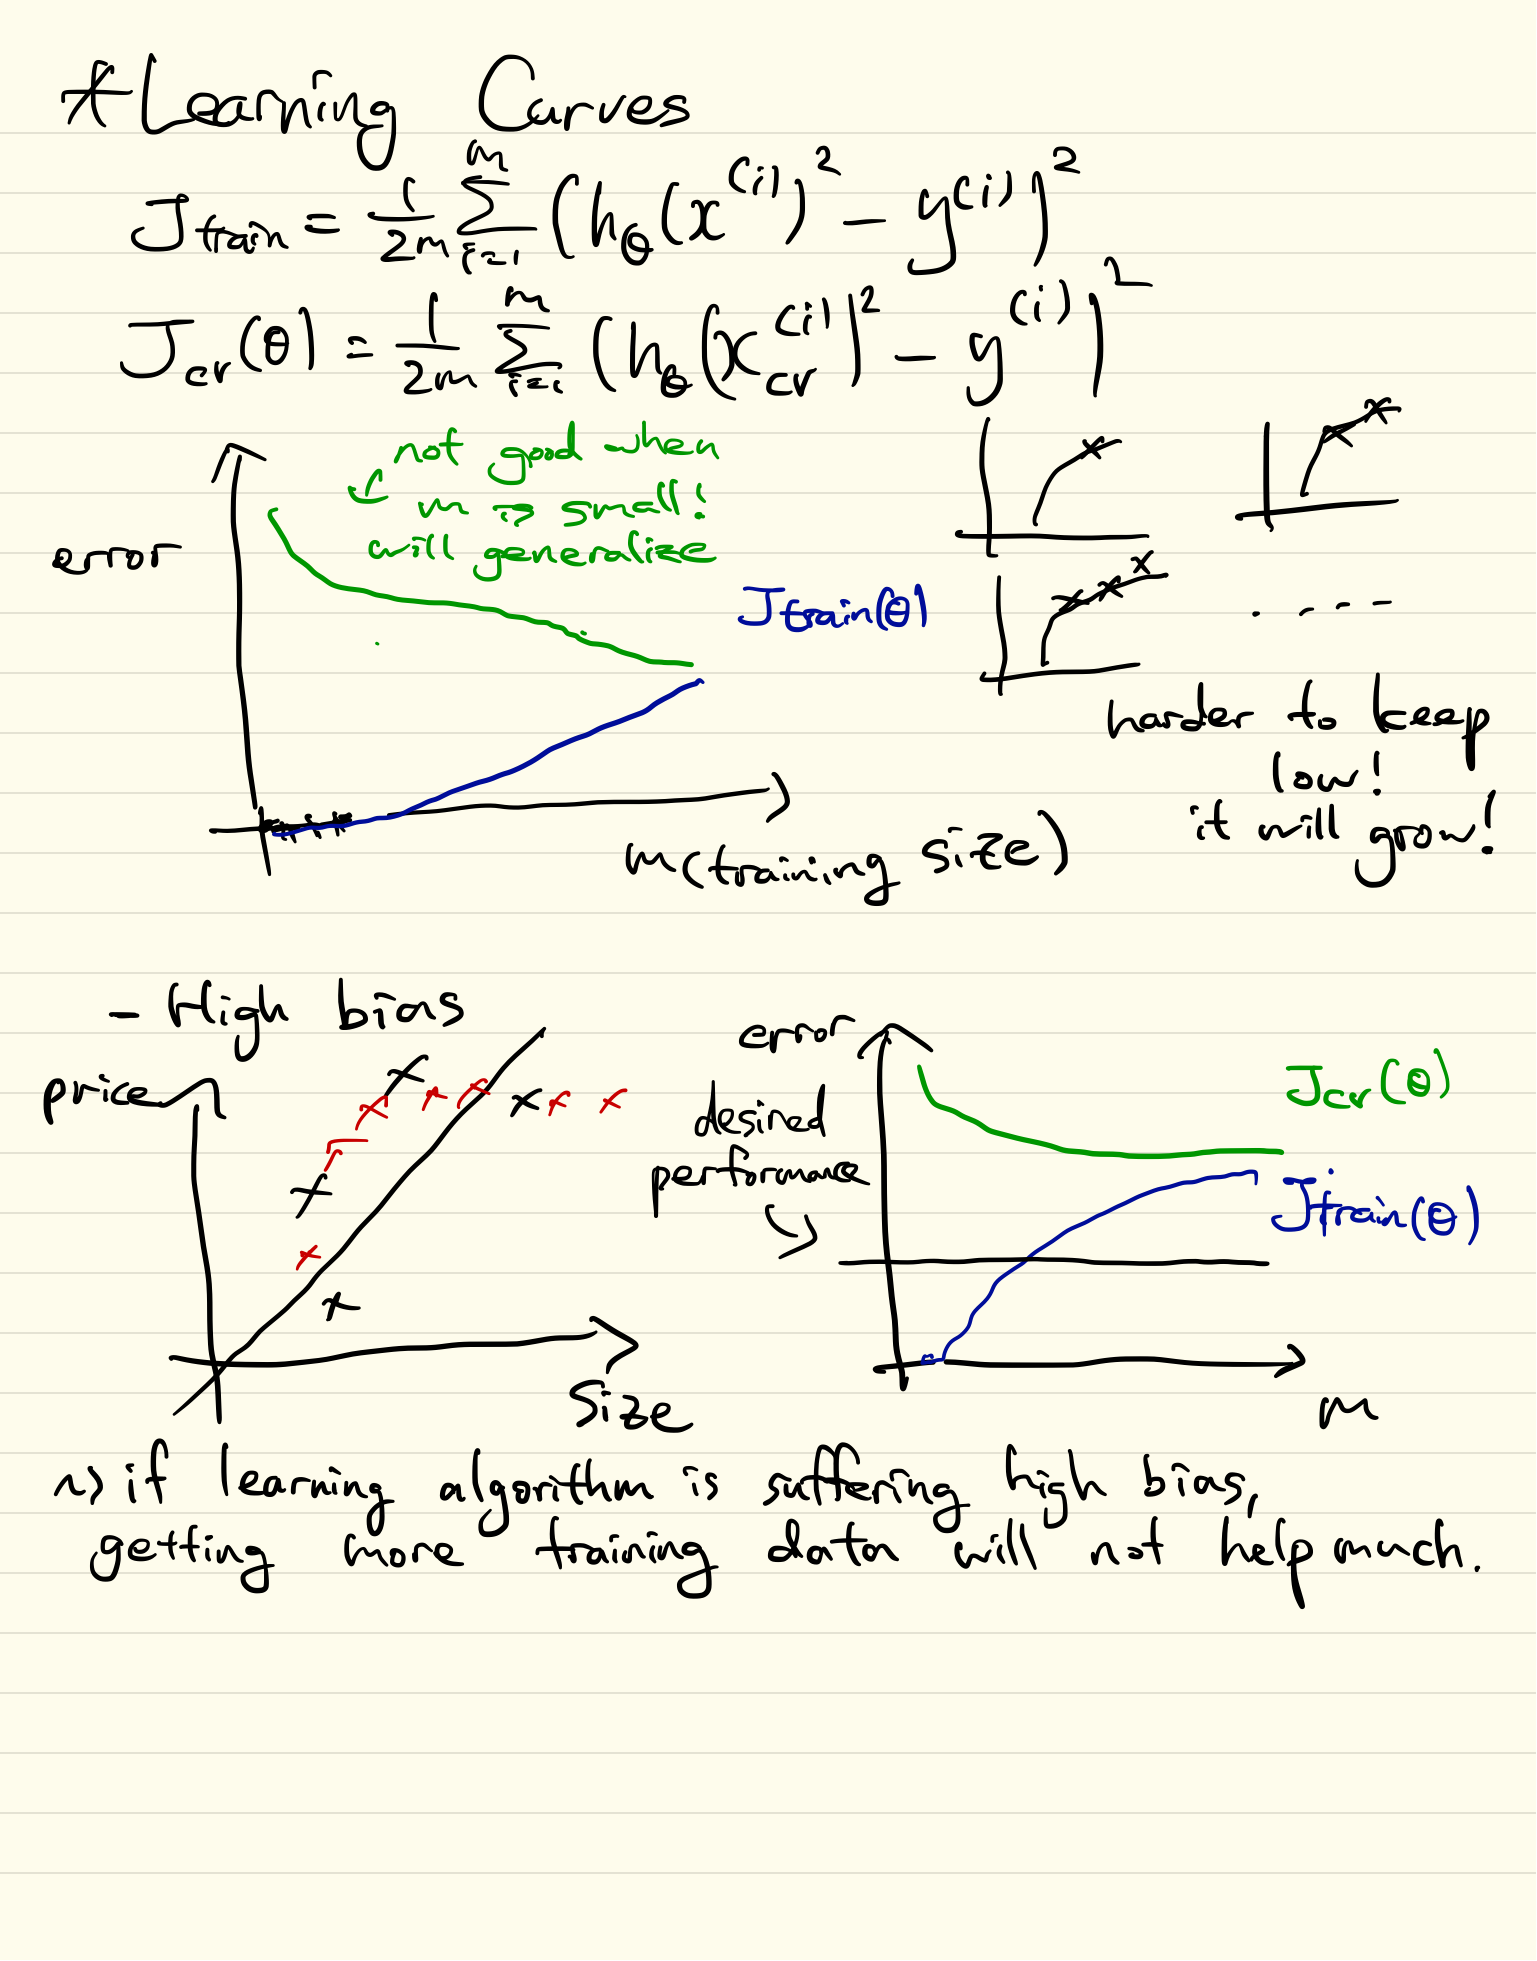 *Learning Curves
J train = 1/2m Σ_{i=1}^{m} (h_θ(x^{(i)})^2 - y^{(i)})^2
J_cv(θ) = 1/2m Σ_{i=1}^{m} (h_θ(x_cv^{(i)})^2 - y^{(i)})^2
not good when
m is small!
will generalize
error
J train(θ)
harder to keep
low!
it will grow!
m(training size)
- High bias
price
size
error
desired
performance
J_cv(θ)
J train(θ)
m
~> if learning algorithm is suffering high bias,
getting more training data will not help much.